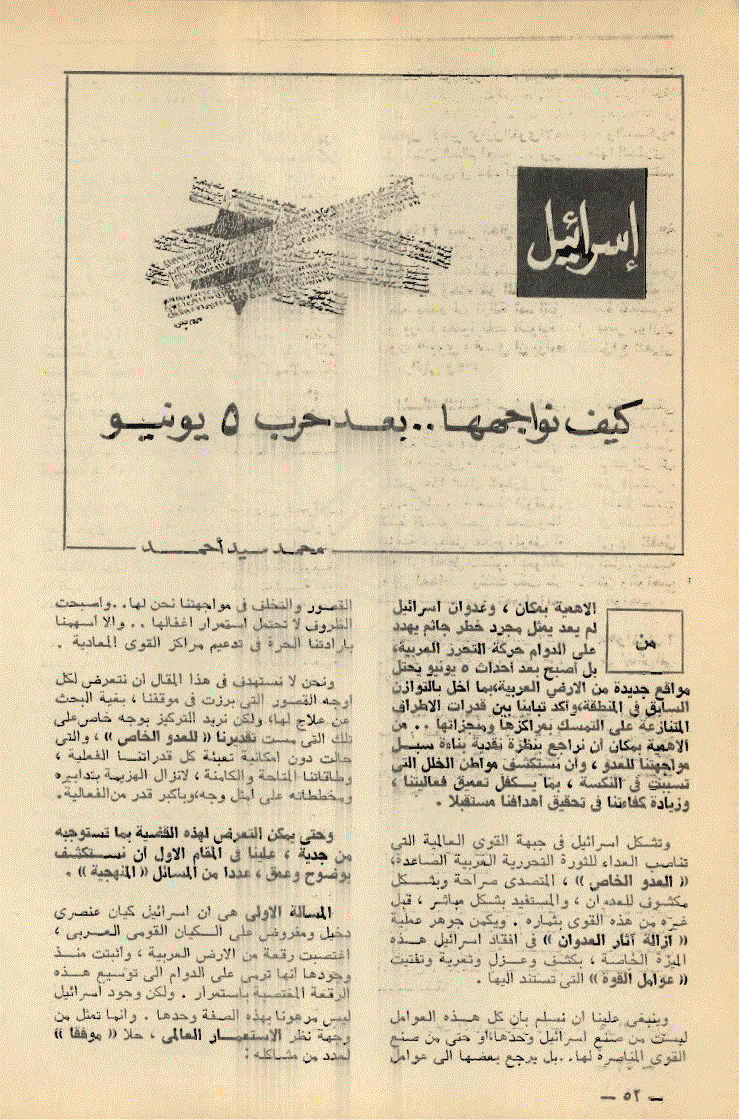 إسرائيل
كيف نواجهها.. بعد حرب ٥ يونيو
محمد سيد أحمد
من
الاهمية بمكان ، وعدوان اسرائيل
لم يعد يمثل مجرد خطر جاثم يهدد
على الدوام حركة التحرر العربية،
بل أصبح بعد أحداث ٥ يونيو يحتل
مواقع جديدة من الارض العربية،بما أخل بالتوازن
السابق فى المنطقة،وأكد تباينا بين قدرات الاطراف
المتنازعة على التمسك بمراكزها ومنجزاتها .. من
الاهمية بمكان أن نراجع بنظرة نقدية بناءة سبل
مواجهتنا للعدو ، وأن نستكشف مواطن الخلل التى
تسببت فى النكسة ، بما يكفل تعميق فعاليتنا ،
وزيادة كفاءتنا فى تحقيق أهدافنا مستقبلا .
وتشكل اسرائيل فى جبهة القوى العالمية التى
تناصب العداء للثورة التحررية العربية الصاعدة،
« العدو الخاص » ، المتصدى صراحة وبشكل
مكشوف للعدوان ، والمستفيد بشكل مباشر ، قبل
غيره من هذه القوى بثماره . ويكمن جوهر عملية
« ازالة آثار العدوان » فى افقاد اسرائيل هذه
الميزة الخاصة ، بكشف وعزل وتعرية وتفتيت
« عوامل القوة » التى تستند اليها .
وينبغى علينا ان نسلم بان كل هذه العوامل
ليست من صنع اسرائيل وحدها،او حتى من صنع
القوى المناصرة لها..بل يرجع بعضها الى عوامل
القصور والتخلف فى مواجهتنا نحن لها..واصبحت
الظروف لا تحتمل استمرار اغفالها .. والا أسهمنا
بارادتنا الحرة فى تدعيم مراكز القوى المعادية .
ونحن لا نستهدف فى هذا المقال ان نتعرض لكل
أوجه القصور التى برزت فى موقفنا ، بغية البحث
عن علاج لها، ولكن نريد التركيز بوجه خاص على
تلك التى مست تقديرنا « للعدو الخاص » ، والتى
حالت دون امكانية تعبئة كل قدراتنا الفعلية ،
وطاقاتنا المتاحة والكامنة ، لانزال الهزيمة بتدابيره
ومخططاته على أمثل وجه،وبأكبر قدر من الفعالية.
وحتى يمكن التعرض لهذه القضية بما تستوجبه
من جدية ، علينا فى المقام الاول أن نستكشف
بوضوح وعمق ، عددا من المسائل « المنهجية » .
المسألة الاولى هى ان اسرائيل كيان عنصرى
دخيل ومفروض على الكيان القومى العربى ،
اغتصبت رقعة من الارض العربية ، وأثبتت منذ
وجودها أنها ترمى على الدوام الى توسيع هذه
الرقعة المغتصبة باستمرار . ولكن وجود اسرائيل
ليس مرهونا بهذه الصفة وحدها . وانما تمثل من
وجهة نظر الاستعمار العالمى ، حلا « موفقا »
لعدد من مشاكله :
— ٥٢ —